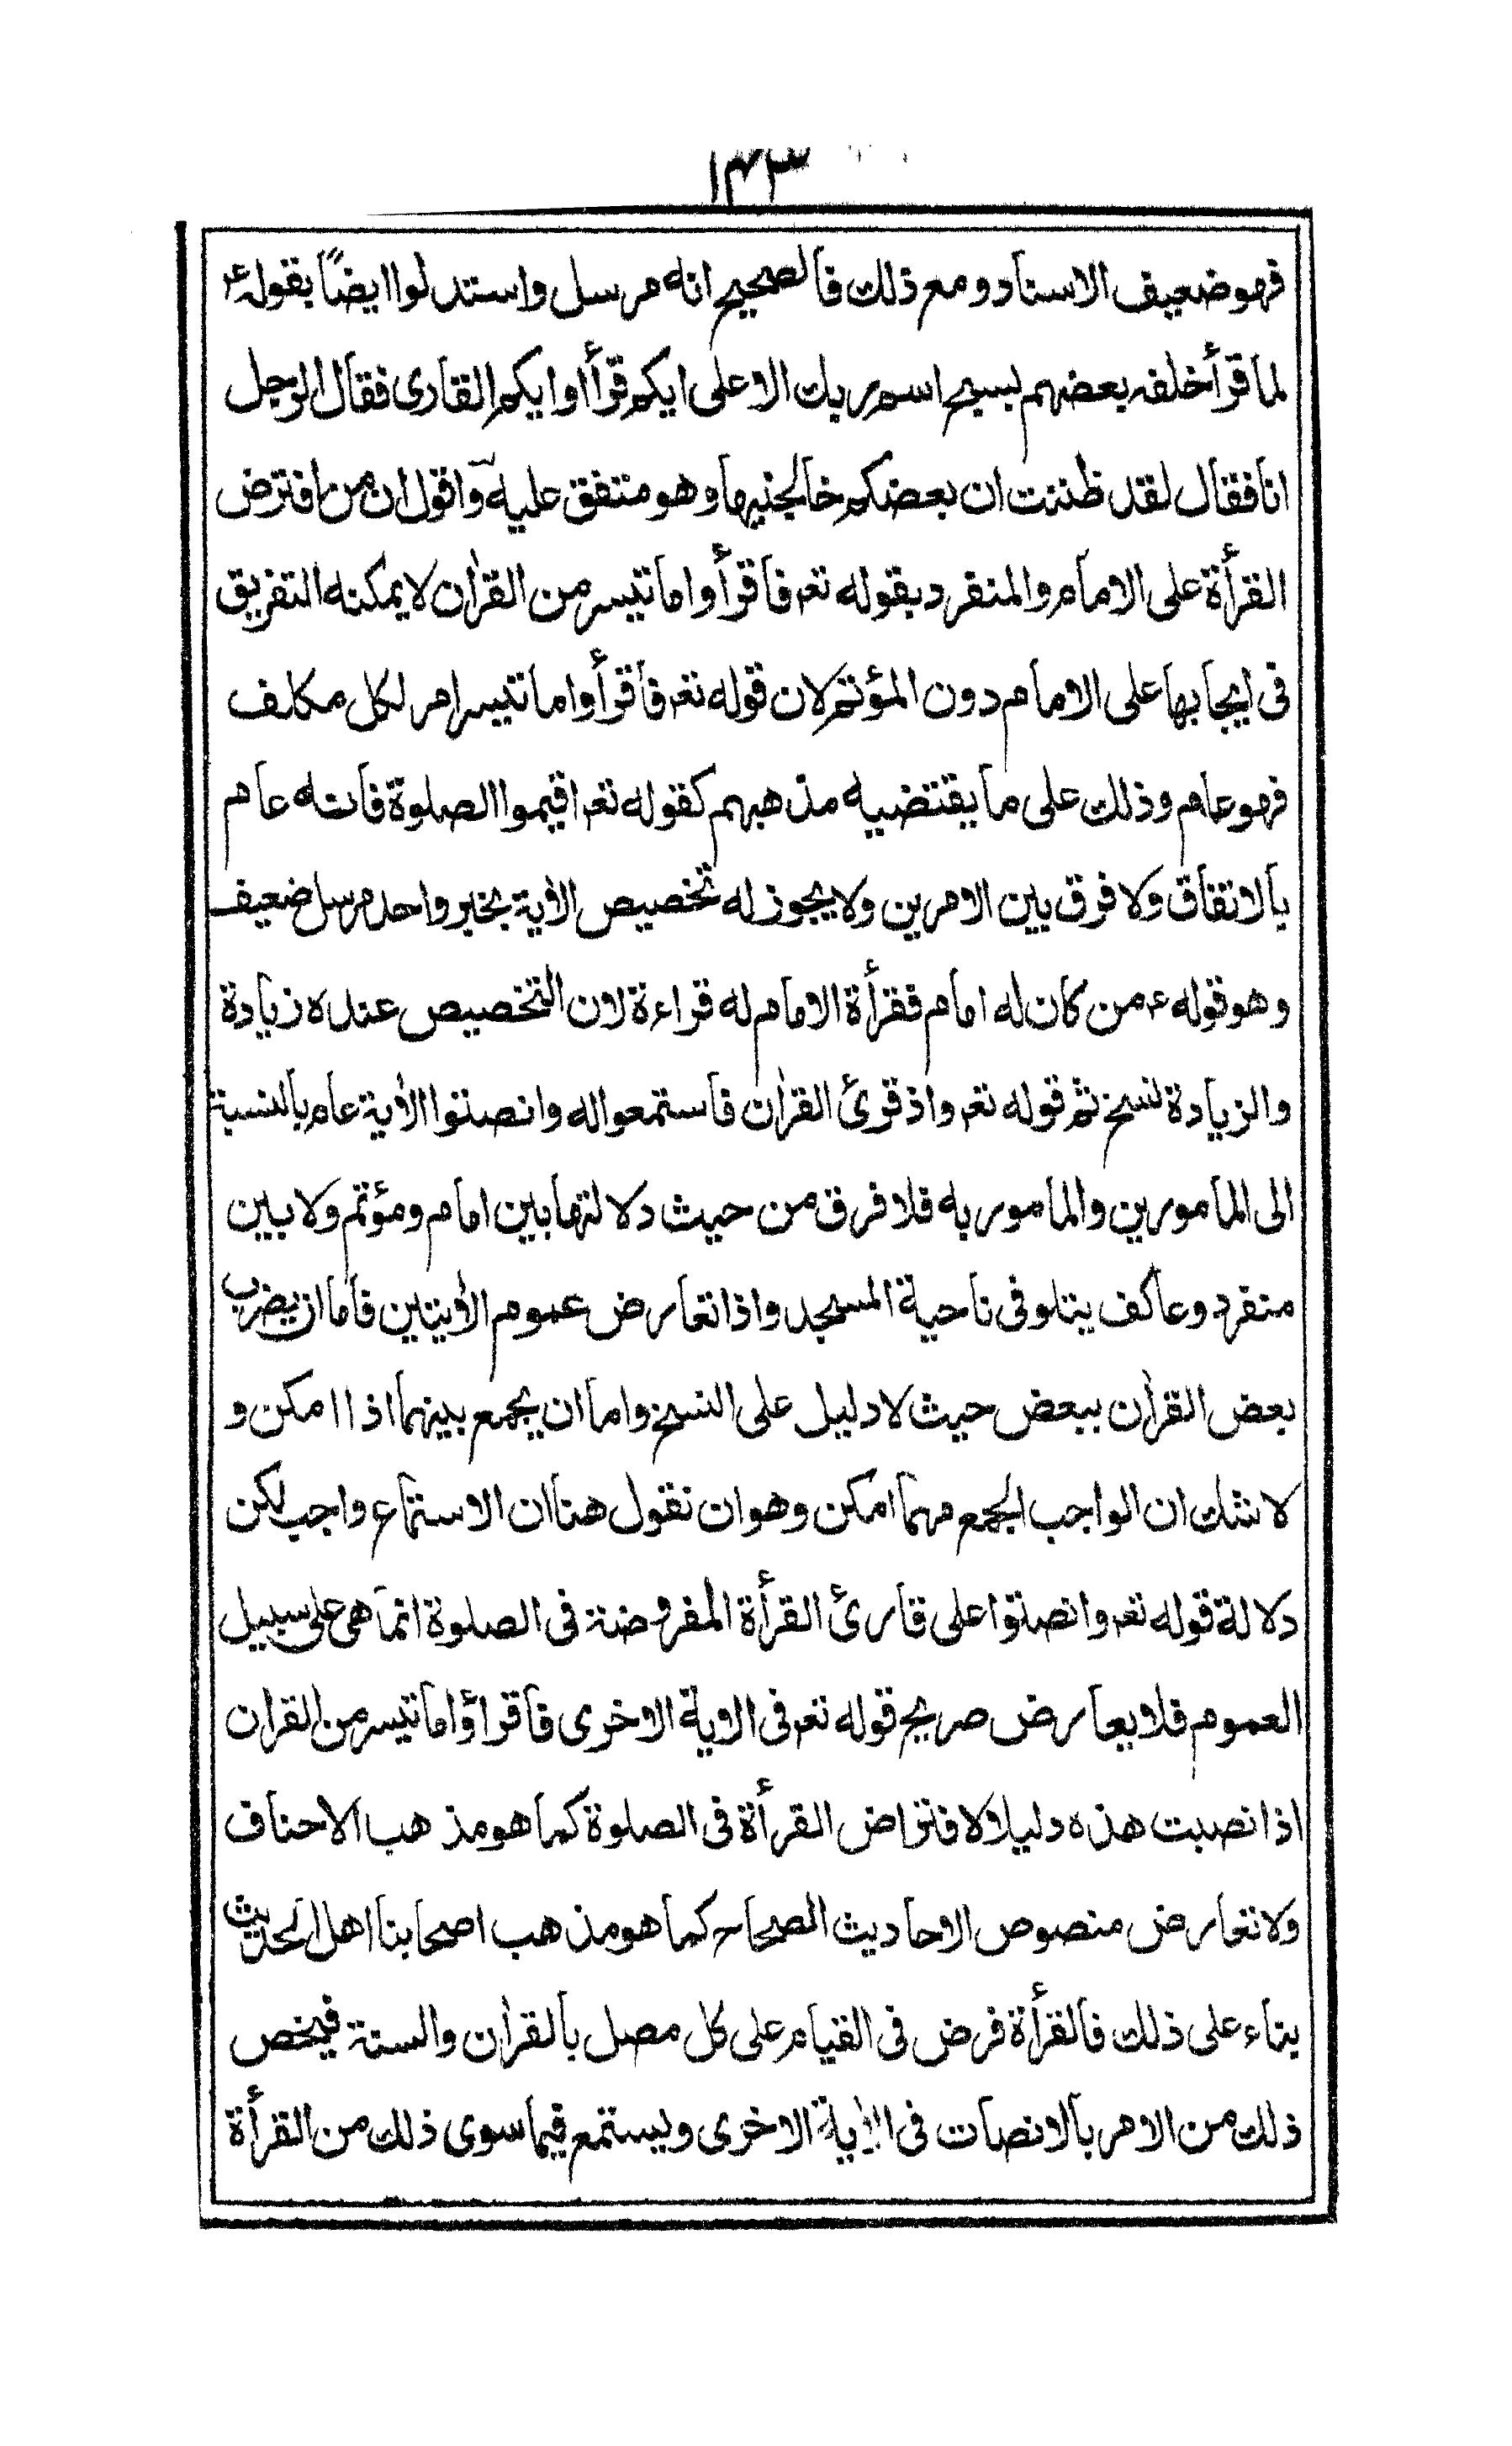 ١٤٣
فهو ضعيف الاسناد ومع ذلك فالصحيح انه مرسل واستدلوا ايضاً بقوله ؑ
لما قرأ خلفه بعضهم بسبح اسم ربك الاعلى ايكم قرأ او ايكم القارى فقال الرجل
انا فقال لقد ظننت ان بعضكم خالجنيها وهو متفق عليه واقول ان من افترض
القرأة على الامام والمنفرد بقوله تعہ فاقرأوا ما تيسر من القرأن لا يمكنه التفريق
فى ايجابها على الامام دون المؤتم لان قوله تعہ فاقرأوا ما تيسر امر لكل مكلف
فهو عام وذلك على ما يقتضيه مذهبهم كقوله تعہ اقيموا الصلوة فانه عام
بالاتفاق ولا فرق بين الامرين ولا يجوز له تخصيص الأية بخبر واحد مرسل ضعيف
وهو قوله ؑ من كان له امام فقرأة الامام له قراءة لان التخصيص عنده زيادة
والزيادة نسخ ثم قوله تعہ واذ قرئ القرأن فاستمعوا له وانصتوا الأية عام بالنسبة
الى المأمورين والمامور به فلا فرق من حيث دلالتها بين امام ومؤتم ولا بين
منفرد وعاكف يتلو فى ناحية المسجد واذا تعارض عموم الأيتين فاما ان يضرب
بعض القرأن ببعض حيث لا دليل على النسخ واما ان يجمع بينهما اذا امكن و
لا شك ان الواجب الجمع مهما امكن وهو ان نقول هنا ان الاستماع واجب لكن
دلالة قوله تعہ وانصتوا على قارئ القرأة المفروضة فى الصلوة انما هى على سبيل
العموم فلا يعارض صريح قوله تعہ فى الاية الاخرى فاقرأوا ما تيسر من القران
اذا نصبت هذه دليلا لافتراض القرأة فى الصلوة كما هو مذهب الاحناف
ولا تعارض منصوص الاحاديث الصحاح كما هو مذهب اصحابنا اهل الحديث
بناء على ذلك فالقرأة فرض فى القيام على كل مصل بالقرأن والسنة فيخص
ذلك من الامر بالانصات فى الأية الاخرى ويستمع فيما سوى ذلك من القرأة